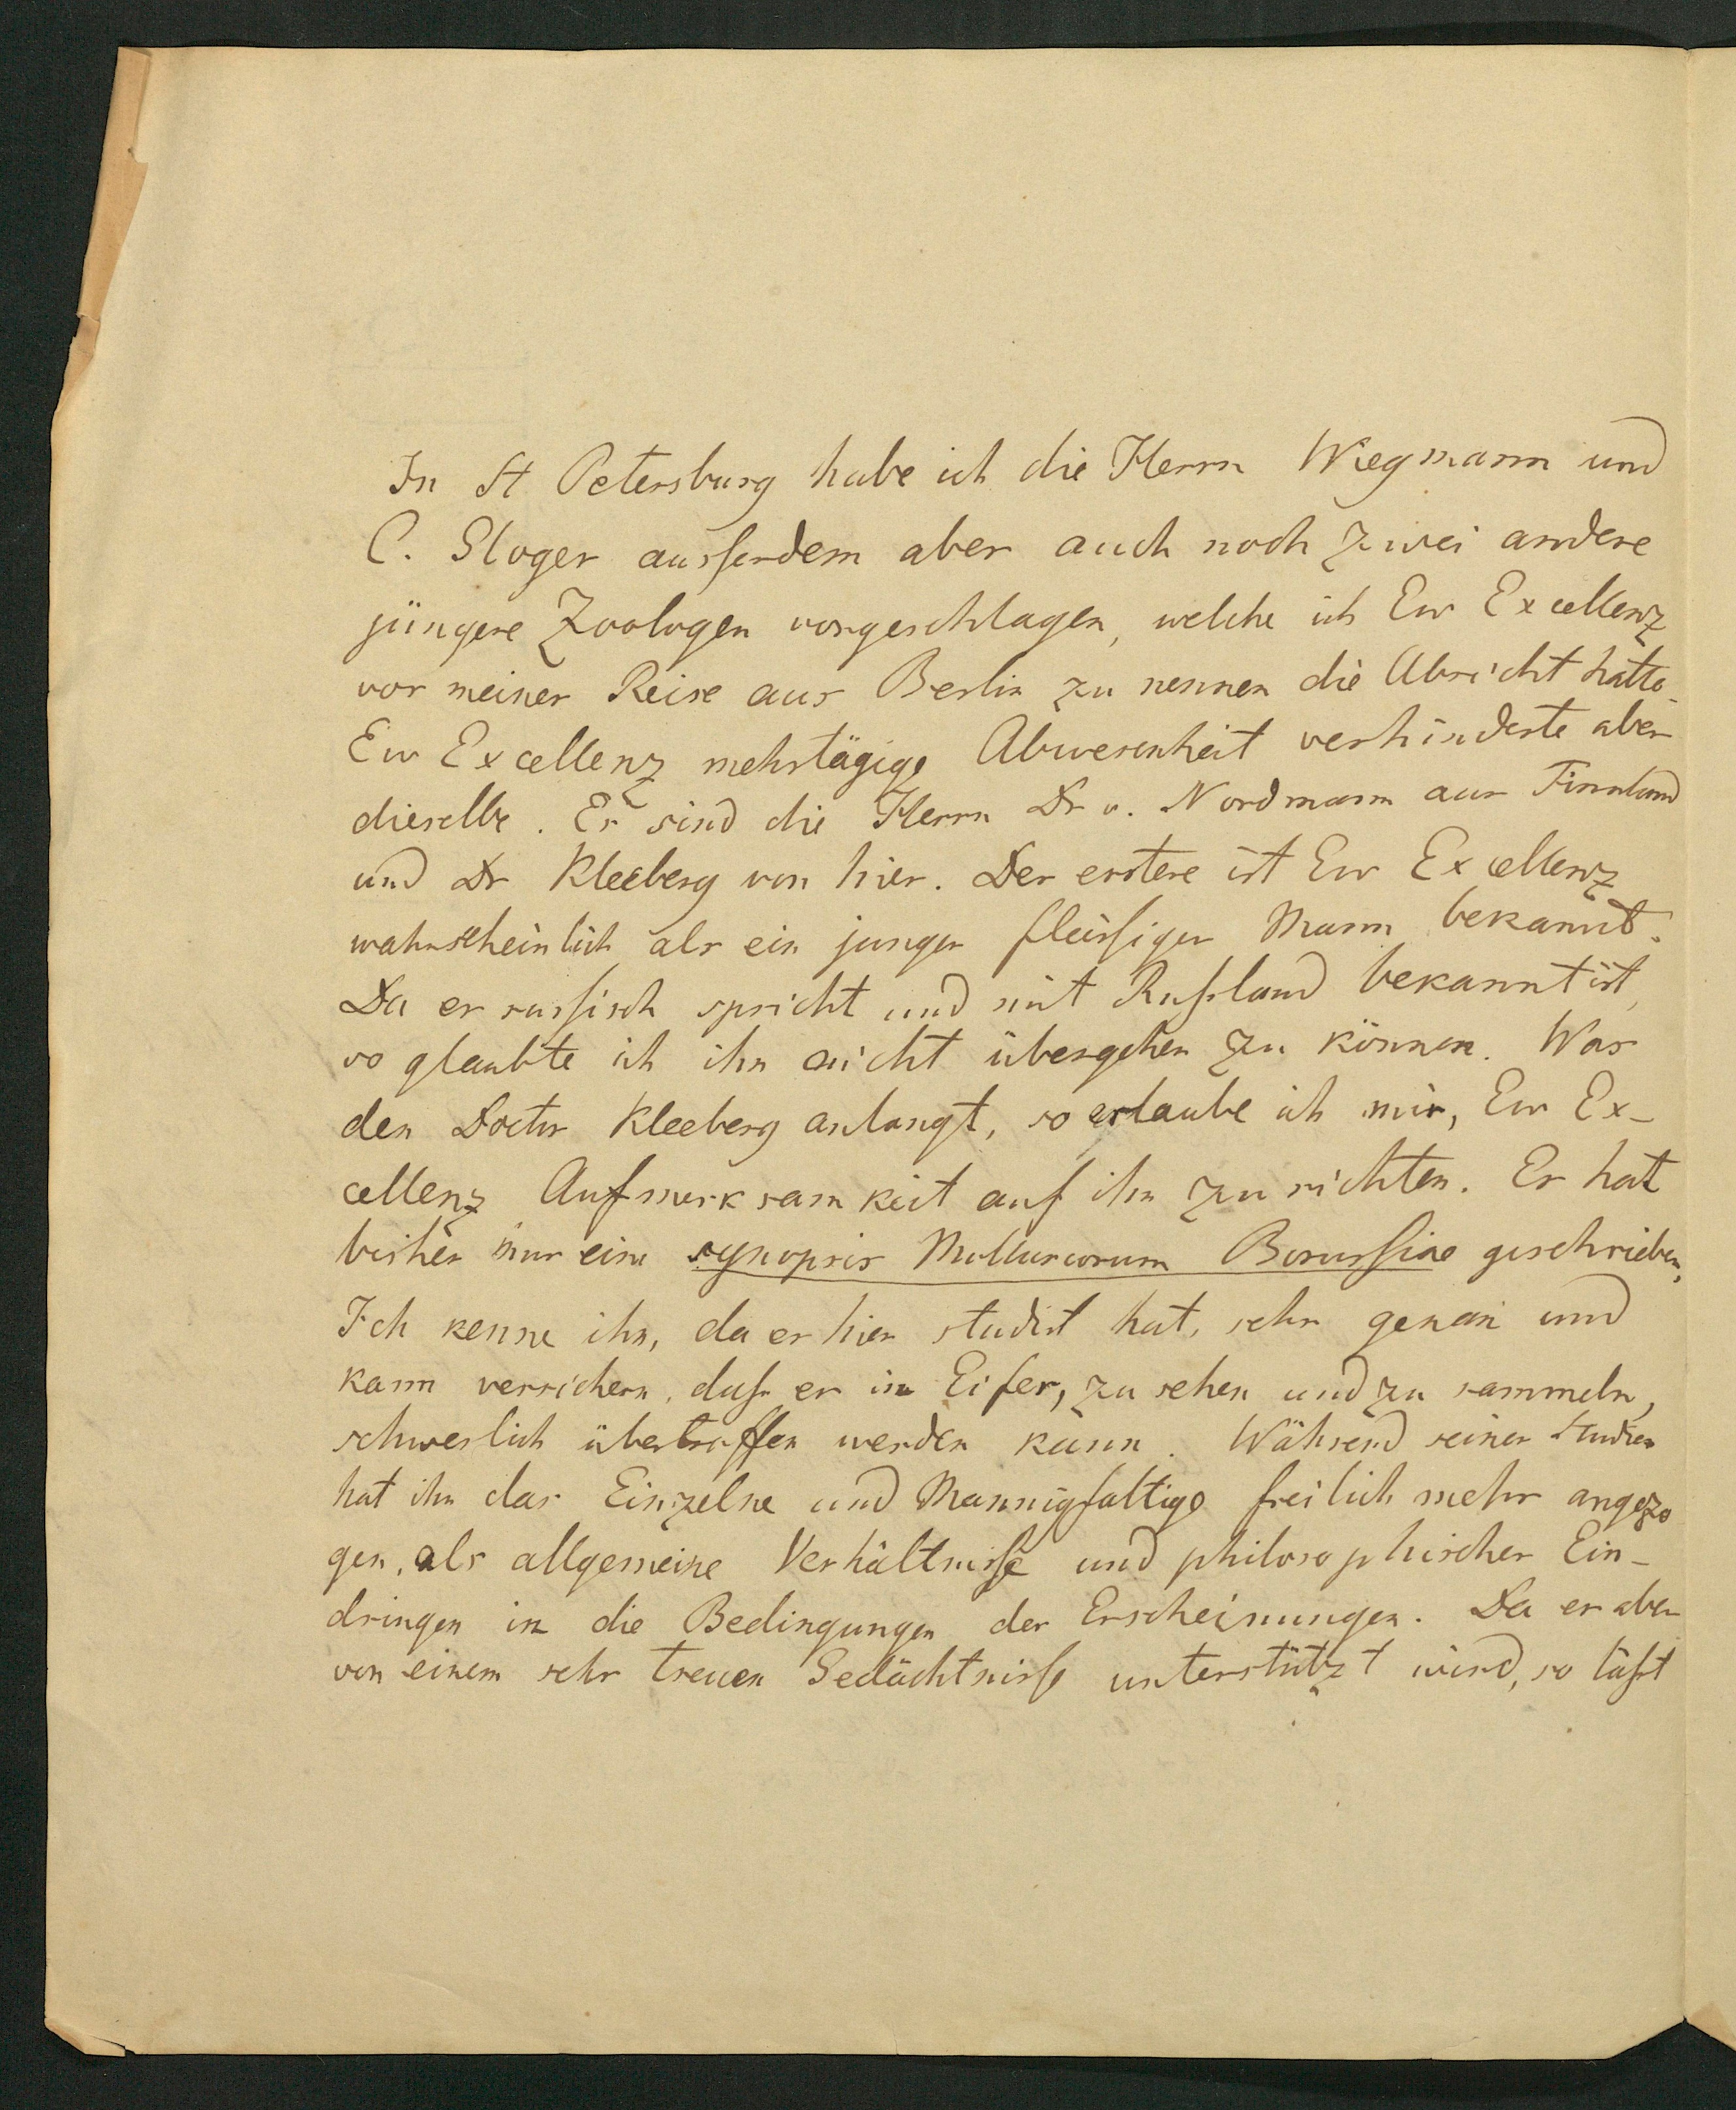 In St Petersburg habe ich die Herrn Wiegmann und
C. Gloger ausserdem aber auch noch zwei andere
jüngere Zoologen vorgeschlagen, welche ich Ew Excellenz
vor meiner Reise aus Berlin zu nennen die Absicht hatte.
Ew Excellenz mehrtägige Abwesenheit verhinderte aber
dieselbe. Es sind die Herrn Dr v. Nordmann aus Finnland
und Dr Kleeberg von hier. Der erstere ist Ew Excellenz
wahrscheinlich als ein junger fleissiger Mann bekannt.
Da er russisch spricht und mit Russland bekannt ist,
so glaubte ich ihn nicht übergehen zu können. Was
den Doctor Kleeberg anlangt, so erlaube ich mir, Ew Ex-
cellenz Aufmerksamkeit auf ihn zu richten. Er hat
bisher nur eine synopsis Molluscorum Borussiae geschrieben,
Ich kenne ihn, da er hier studirt hat, sehr genau und
kann versichern, dass er in Eifer, zu sehen und zu sammeln,
schwerlich übertroffen werden kann. Während seiner Studien
hat ihn das Einzelne und Mannigfaltige freilich mehr angezo
gen, als allgemeine Verhältnisse und philosophisches Ein-
dringen in die Bedingungen der Erscheinungen. Da er aber
von einem sehr treuen Gedächtnisse unterstützt wird, so lässt